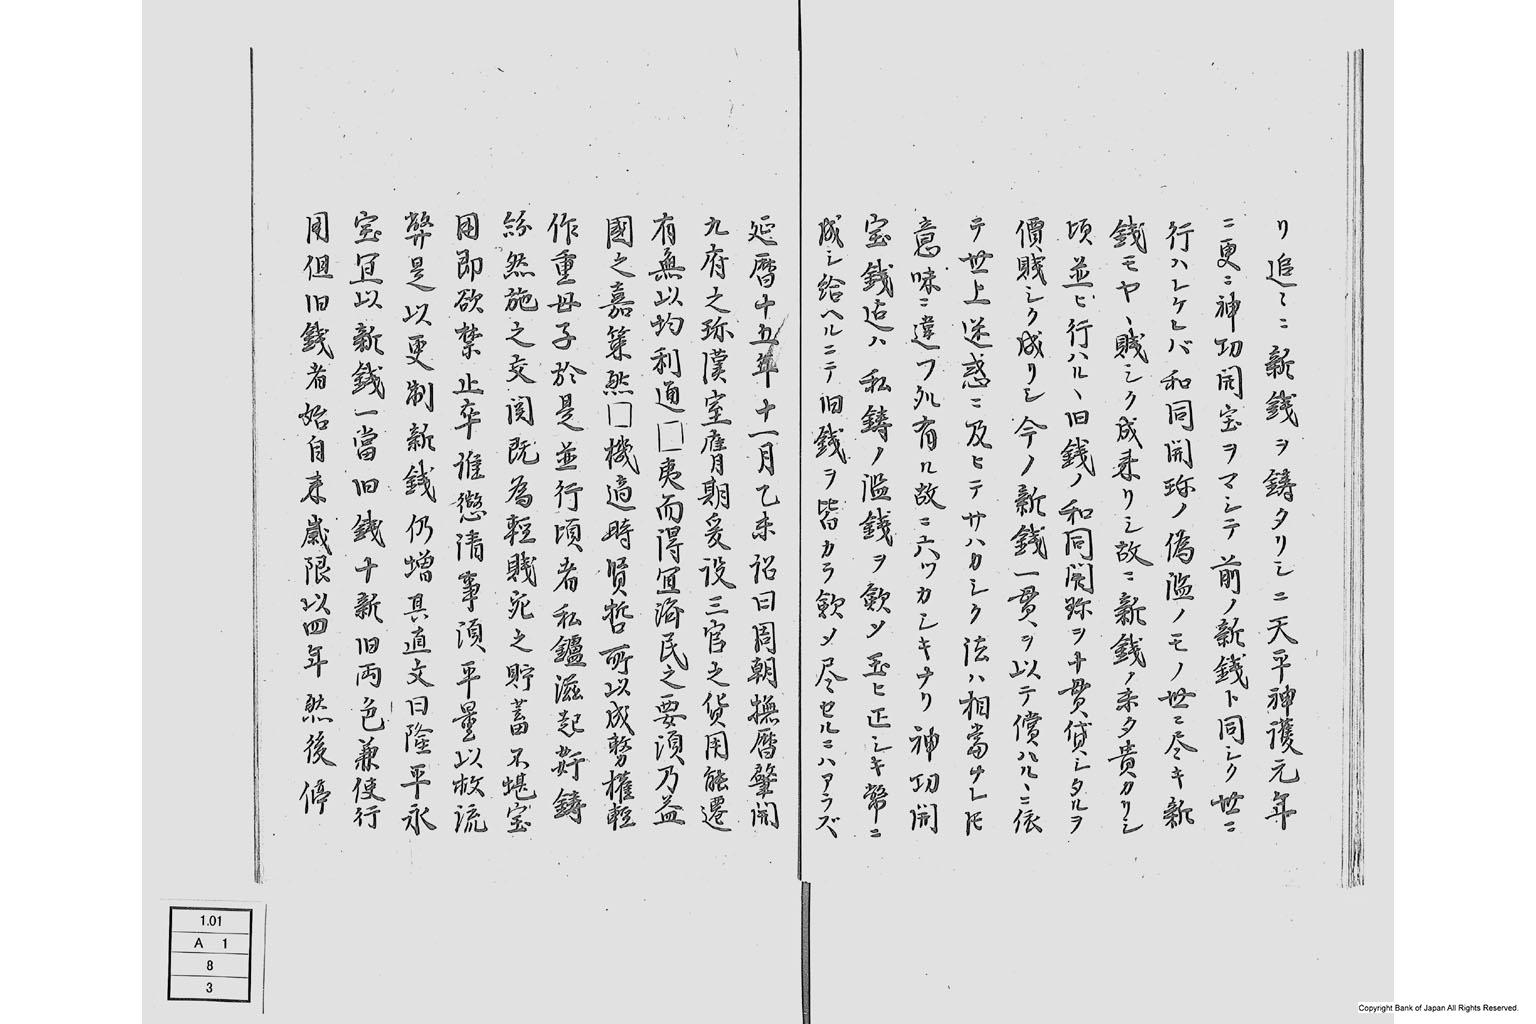 リ追〻ニ新銭ヲ鋳タリシニ天平神護元年
ニ更ニ神功開宝ヲマシテ前ノ新銭ト同シク世ニ
行ハレケレバ和同開珎ノ偽濫ノモノ世ニ尽キ新
銭モヤヽ賎シク成来リシ故ニ新銭ノ未タ貴カリシ
頃並ビ行ハルヽ旧銭ノ和同開珎ヲ十貫貸シタルヲ
價賎シク成リシ今ノ新銭一貫ヲ以テ償ハルヽニ依
テ世上迷惑ニ及ヒテサハカシク法ハ相當ナレ𪜈
意味ニ違フ処有ル故ニ六ツカシキナリ神功開
宝銭迠ハ私鋳ノ濫銭ヲ歛メ玉ヒ正シキ幣ニ
成シ給ヘルニテ旧銭ヲ皆カラ歛メ尽セルニハアラズ
延暦十五年十一月乙未詔曰周朝撫暦肇開
九府之珎漢室膺期爰設三官之貨用能遷
有無以均利通□夷而得宜済民之要須乃益
國之嘉策然□機適時賢哲所以成務権軽
作重母子於是並行頃者私鑪滋起姧鋳
紛然施之交関既為軽賎充之貯蓄不堪宝
用即欲禁止卒難懲清事須平量以救流
弊是以更制新銭仍増其直文曰隆平永
宝宜以新銭一當旧銭十新旧両色兼使行
用但旧銭者始自来歳限以四年然後停
1.01
A 1
8
3
Copyright Bank of Japan All Rights Reserved.